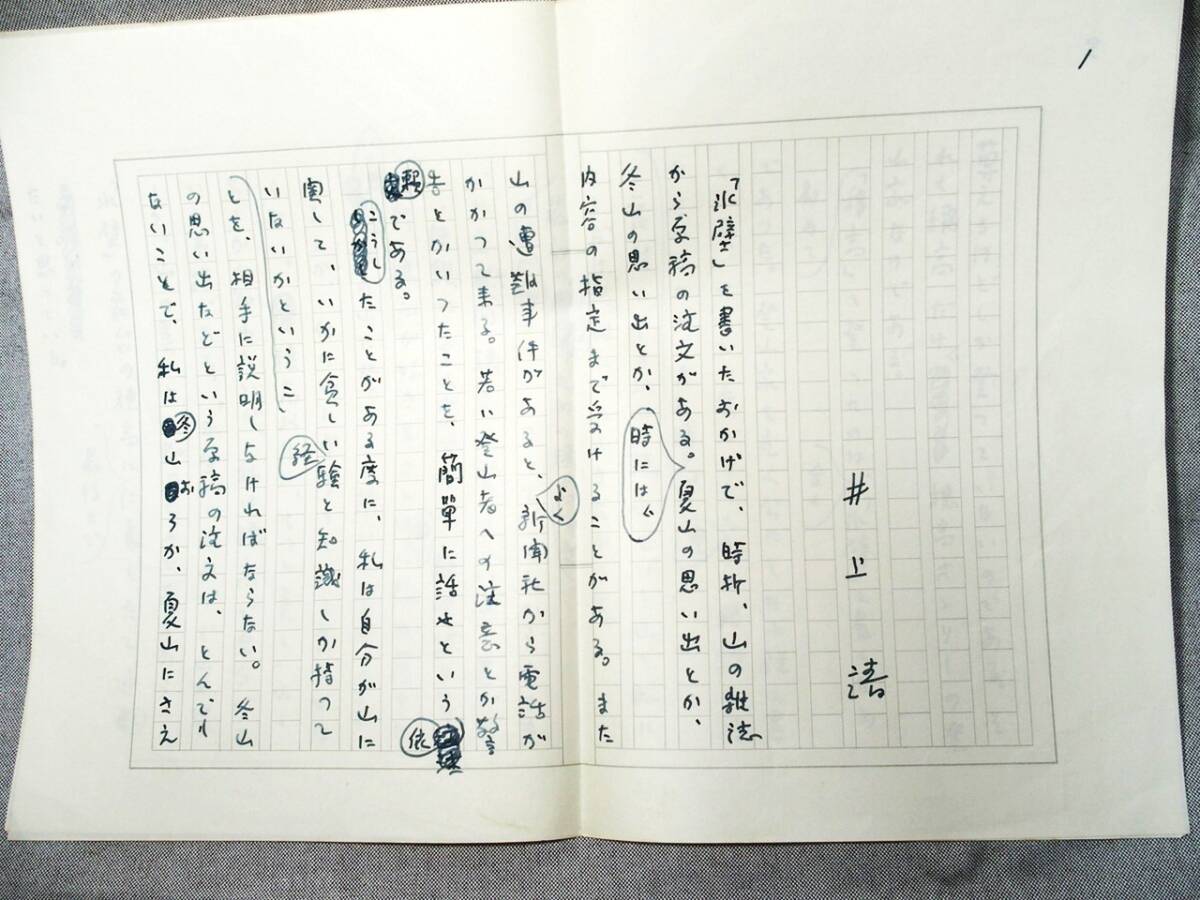 1
井上靖
「氷壁」を書いたおかげで、時折、山の雑誌
から原稿の注文がある。夏山の思い出とか、
冬山の思い出とか、時には
内容の指定まで受けることがある。また
山の遭難事件があると、よく新聞社から電話が
かかって来る。若い登山者への注意とか警
告とかいったことを、簡単に話せという依
頼である。
こうしたことがある度に、私は自分が山に
関して、いかに貧しい経験と知識しか持って
いないかというこ
とを、相手に説明しなければならない。冬山
の思い出などという原稿の注文は、とんでも
ないことで、私は冬山おろか、夏山にさえ